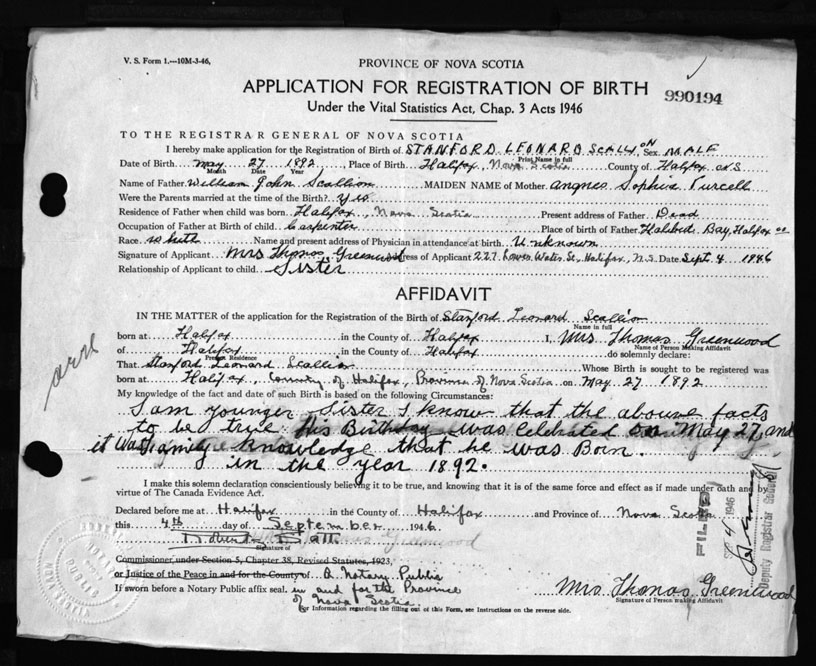 V. S. Form 1.—10M-3-46,
PROVINCE OF NOVA SCOTIA
APPLICATION FOR REGISTRATION OF BIRTH
990194
Under the Vital Statistics Act, Chap. 3 Acts 1946
TO THE REGISTRAR GENERAL OF NOVA SCOTIA
I hereby make application for the Registration of Birth of STANFORD LEONARD SCALLION Sex MALE
Print Name in full
Date of Birth May 27 1892, Place of Birth Halifax, Nova Scotia County of Halifax N.S
Month Day Year
Name of Father William John Scallion MAIDEN NAME of Mother Angnes Sophia Purcell
Were the Parents married at the time of the Birth? Yes
Residence of Father when child was born Halifax, Nova Scotia Present address of Father Dead
Occupation of Father at Birth of child Carpenter Place of Birth of Father Halibut Bay, Halifax Co
Race white Name and present address of Physician in attendance at birth Unknown
Signature of Applicant Mrs Thomas Greenwood Address of Applicant 227 Lower Water St, Halifax, N.S. Date Sept. 4 1946
Relationship of Applicant to child Sister
AFFIDAVIT
IN THE MATTER of the application for the Registration of Birth of Stanford Leonard Scallion
Name in full
born at Halifax in the County of Halifax I, Mrs Thomas Greenwood
Name of Person Making Affidavit
of Halifax, in the County of Halifax do solemnly declare:
Present Residence
That Stanford Leonard Scallion Whose Birth is sought to be registered was
born at Halifax, County of Halifax, Province of Nova Scotia on May 27 1892
My knowledge of the fact and date of such Birth is based on the following Circumstances:
I am younger Sister I know that the abouve facts
to be true His Birthday was Celebrated on May 27, and
it was family knowledge that he was Born
in the year 1892.
I make this solemn declaration conscientiously believing it to be true, and knowing that it is of the same force and effect as if made under oath and by
virtue of The Canada Evidence Act.
Declared before me at Halifax in the County of Halifax and Province of Nova Scotia
this 4th day of September 1946
Signature of
Commissioner under Section 5, Chapter 38, Revised Statutes, 1923,
or Justice of the Peace in and for the County of A Notary Public
If sworn before a Notary Public affix seal. in and for the Province
of Nova Scotia
Mrs Thomas Greenwood
Signature of Person making Affidavit
For Information regarding the filling out of this Form, see Instructions on the reverse side.
FILED
4 1946
Deputy Registrar General